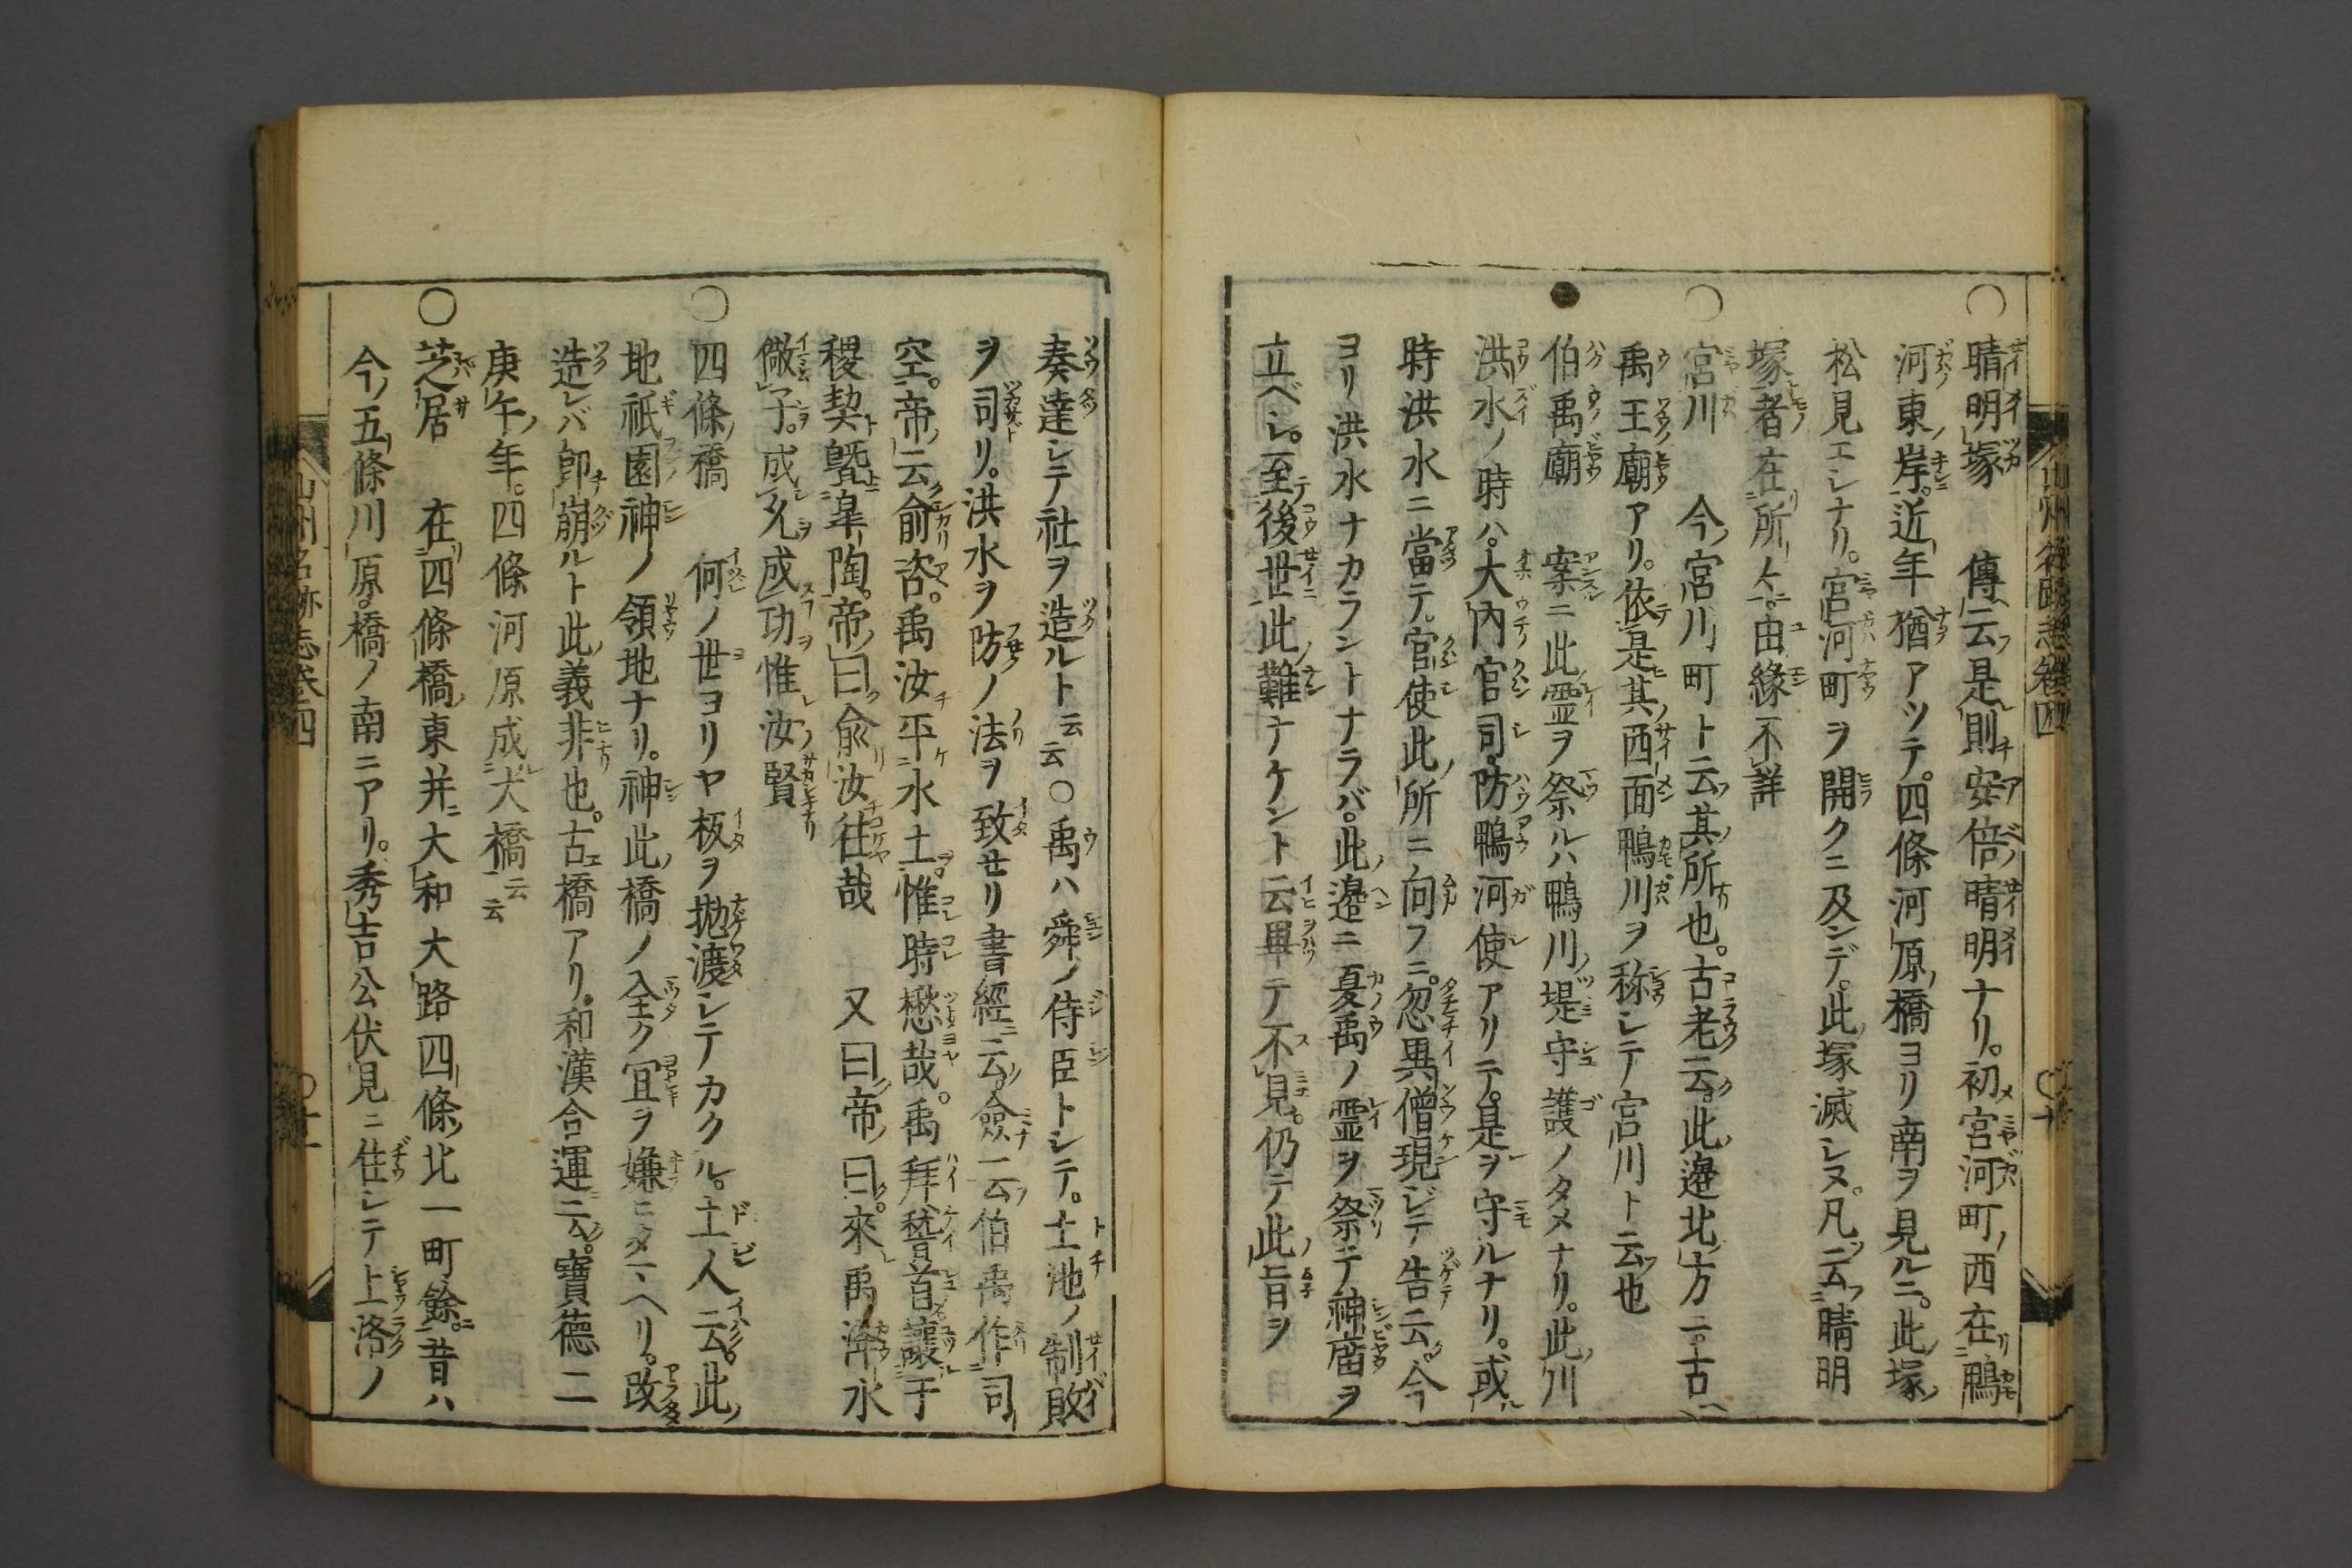 ○晴明塚 傳云是則安倍晴明ナリ。初宮河町ノ西在鴨
河東ノ岸。近年猶アツテ。四條河原橋ヨリ南ヲ見ルニ。此塚ノ
松見エシナリ。宮河町ヲ開クニ及ンデ。此塚滅シヌ。凡云晴明
塚者在所々。由緣不詳
○宮川 今ノ宮川町ト云其所也。古老云。此邉北ノ方ニ。古ヘ
禹王廟アリ。依是其西面鴨川ヲ称シテ宮川ト云也
●伯禹廟 案ニ此霊ヲ祭ルハ鴨川ノ堤守護ノタメナリ。此川
洪水ノ時ハ。大内官司。防鴨河使アリテ。是ヲ守ルナリ。或
時洪水ニ當テ。官使此所ニ向フニ。忽異僧現ジテ告云。今
ヨリ洪水ナカラントナラバ。此邉ニ夏禹ノ霊ヲ祭テ神庿ヲ
立ベシ。至後世此難ナケント云畢テ不見。仍テ此旨ヲ
山州名跡志卷四
奏達シテ社ヲ造ルト云云○禹ハ舜ノ侍臣トシテ。土池ノ制敗
ヲ司リ。洪水ヲ防ノ法ヲ致セリ書經云僉云伯禹作司
空。帝云俞咨。禹汝平水土。惟時懋哉。禹拜稽首讓于
稷契曁皐陶。帝曰俞汝往哉 又曰帝曰。來禹洚水
儆予。成允成功惟汝賢
○四條橋 何ノ世ヨリヤ板ヲ抛渡シテカクル。土人云。此
地祇園神ノ領地ナリ。神此橋ノ全ク宜ヲ嫌ニタマヘリ。改
造レバ即崩ルト此義非也。古橋アリ。和漢合運云。寶德二
庚午年。四條河原成大橋云云
○芝居 在四條橋東并大和大路四條北一町餘。昔ハ
今ノ五條川原。橋ノ南ニアリ。秀吉公伏見ニ住シテ上洛ノ
山州名跡志卷四